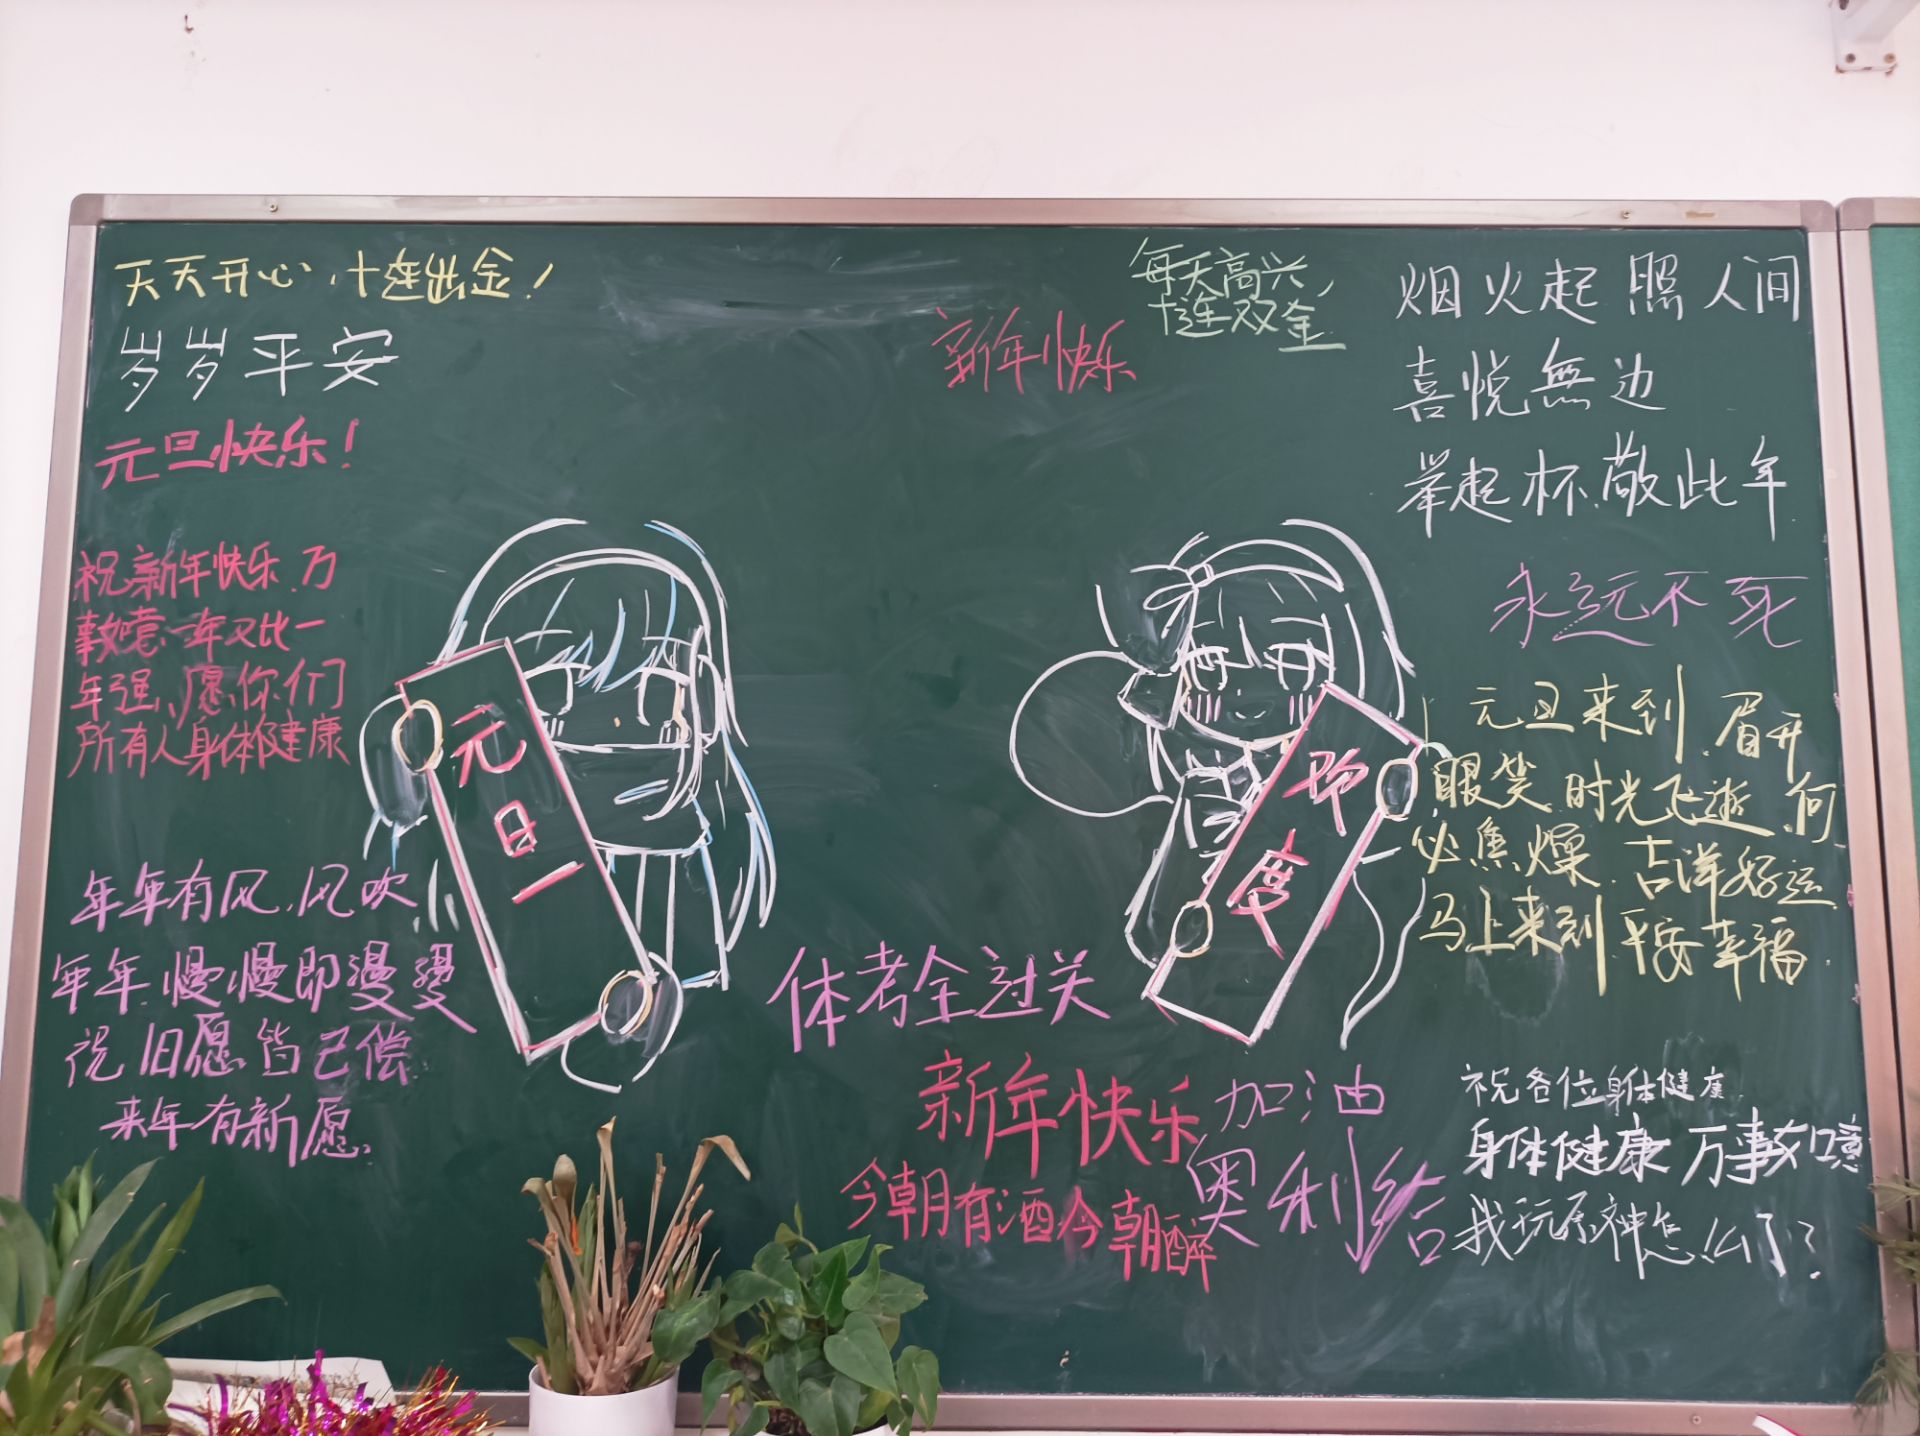 天天开心,十连出金!
岁岁平安
元旦快乐!
祝新年快乐,万
事如意,一年又比一
年强,愿你们
所有人身体健康
年年有风,风吹
年年,慢慢即漫漫
祝旧愿皆已偿
来年有新愿.
元旦
新年快乐
每天高兴,
十连双金
烟火起 照人间
喜悦無边
举起杯,敬此年
永远不死
元旦来到,眉开
眼笑,时光飞逝,何
必焦燥,吉洋好运
马上来到,平安幸福.
度
体考全过关
新年快乐
今朝有酒今朝醉
加油
奥利给
祝各位身体健康
身体健康 万事如意
我玩原神怎么了?